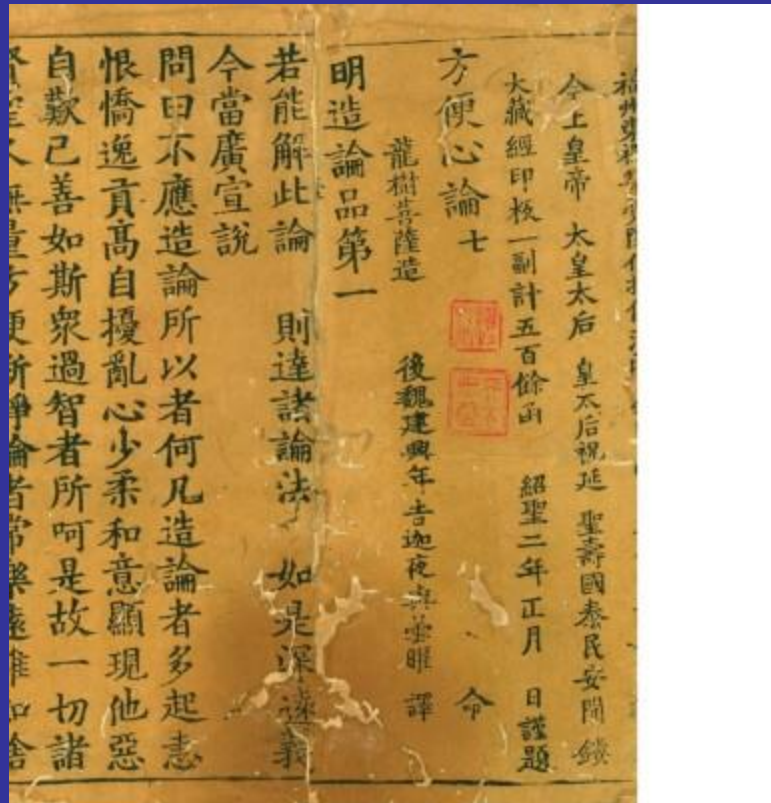 福州東禪
今上皇帝　太皇太后　皇太后祝延　聖壽國泰民安開鏤
大藏經印板一副計五百餘函　紹聖二年正月　日謹題
方便心論　七　命
龍樹菩薩造　後魏延興年吉迦夜與曇曜　譯
明造論品第一
若能解此論　則達諸論法　如是深遠義
今當廣宣說
問曰不應造論所以者何凡造論者多起恚
恨憍逸貢高自擾亂心少柔和意顯現他惡
自歎己善如斯衆過智者所呵是故一切諸
賢聖人無量方便斷諍論者常樂遠離如捨